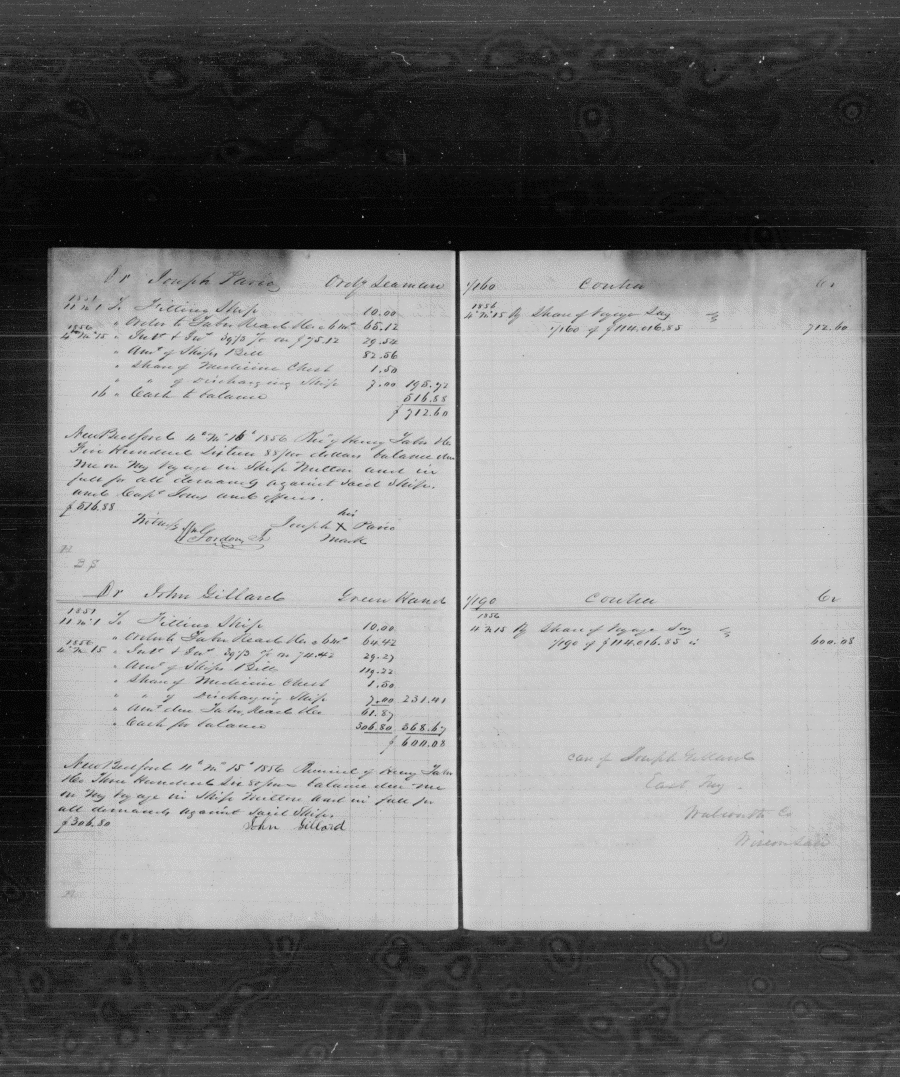 Dr Joseph Pavie Ordy Seaman
1851
11 Mo 1 To Fitting Ship 10.00
" Orders to Taber Read &Co & 6 mo 65.12
1856
4th Mo 15 " Int & Ins 39/3 % on $75.12 29.54
" Amt of Ships Bill 82.56
" Share of Medicine Chest 1.50
" " of Discharging Ship 7.00 195.72
16 " Cash to balance 516.88
$712.60
New Bedford 4th Mo 16th 1856 Rec of Henry Taber &Co
Five Hundred Sixteen 88/100 dollars balance due
me on my voyage in Ship Milton and in
full for all demands against said Ship,
and Capt Jones and officers.
$516.88
his
Witness Joseph X Pavie
Gordon Jr mark
Dr John Gillard Green Hand
1851
11 Mo 1 To Fitting Ship 10.00
" Orders to Taber Read &Co & 6 mo 64.42
1856
4th Mo 15 " Int & Ins 39/3 % on 74.42 29.27
" Amt of Ships Bill 119.22
" Share of Medicine Chest 1.50
" " of Discharging Ship 7.00 231.41
" Amt due Taber Read &Co 61.87
" Cash for balance 306.80 368.67
$600.08
New Bedford 4th Mo 15th 1856 Received of Henry Taber
&Co Three Hundred Six 80/100 balance due me
on my voyage in Ship Milton and in full for
all demands against said Ship.
$306.80 John Gillard
1/160 Contra Cr
1856
4th Mo 15 By Share of Voyage Lay
1/160 of $114.016.85 712.60
1/190 Contra Cr
1856
4th Mo 15 By Share of Voyage Lay
1/190 of $114.016.85 is 600.08
care of Joseph Gillard
East Troy
Walworth Co
Wisconsin